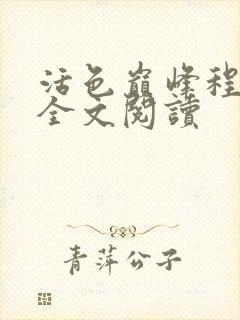 活色巅峰程
全文閱讀
青萍公子